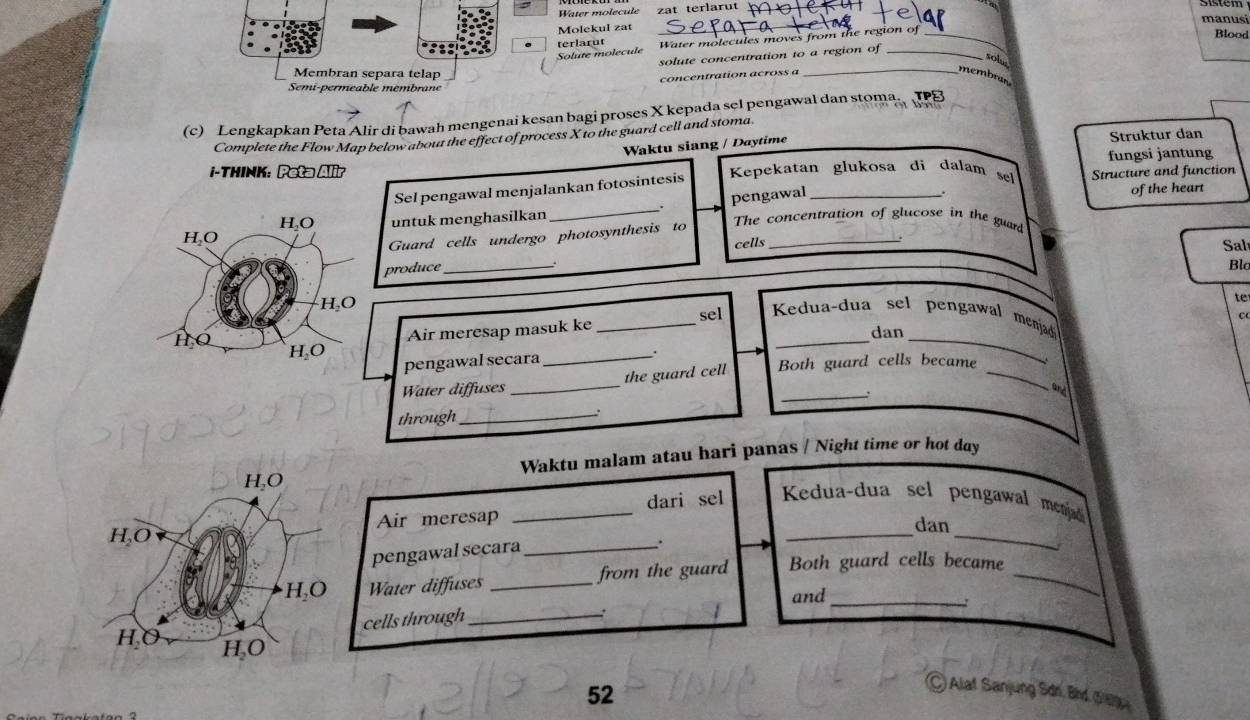 Water molecule zat terlarut molekul
Molekul zat separa telap telap
terlarut
Solute molecule Water molecules moves from the region of
solute concentration to a region of
concentration across a membrane
Membran separa telap
Semi-permeable membrane
(c) Lengkapkan Peta Alir di bawah mengenai kesan bagi proses X kepada sel pengawal dan stoma. TP3
Complete the Flow Map below about the effect of process X to the guard cell and stoma.
i-THINK: Peta Alir
Waktu siang / Daytime
H₂O
H₂O
H₂O
H₂O
H₂O
Sel pengawal menjalankan fotosintesis
untuk menghasilkan ________.
Guard cells undergo photosynthesis to
produce ________.
Kepekatan glukosa di dalam sel
pengawal ________.
The concentration of glucose in the guard
cells ________.
Air meresap masuk ke ________ sel
pengawal secara ________.
Water diffuses ________ the guard cell
through ________.
Kedua-dua sel pengawal menjadi
________ dan ________.
Both guard cells became ________ and
________.
Waktu malam atau hari panas / Night time or hot day
H₂O
H₂O
H₂O
H₂O
H₂O
Air meresap ________ dari sel
pengawal secara ________.
Water diffuses ________ from the guard
cells through ________.
Kedua-dua sel pengawal menjadi
________ dan ________.
Both guard cells became ________
and ________.
Sistem
manusi
Blood
Struktur dan
fungsi jantung
Structure and function
of the heart
Sal
Blo
te
co
52
© Alaf Sanjung Sdn. Bhd.